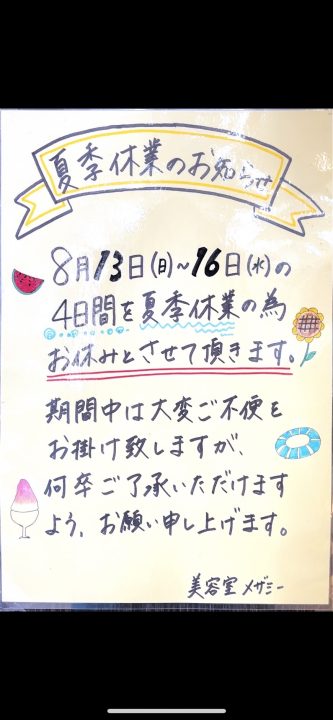 夏季休業のお知らせ
8月13日(日)~16日(水)の
4日間を夏季休業の為
お休みとさせて頂きます。
期間中は大変ご不便を
お掛け致しますが、
何卒ご了承いただけます
よう、お願い申し上げます。
美容室メザミー